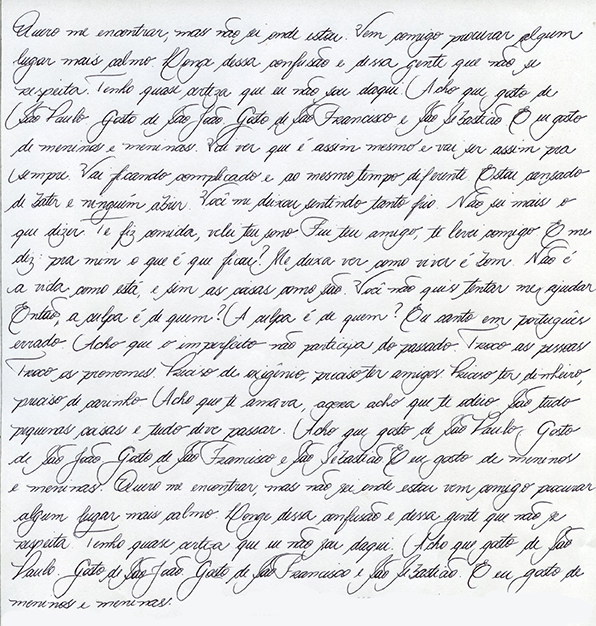 Quero me encontrar, mas não sei onde estou. Vem comigo procurar algum
lugar mais calmo Longe dessa confusão e dessa gente que não se
respeita. Tenho quase certeza que eu não sou daqui. Acho que gosto de
São Paulo Gosto de São João Gosto de São Francisco e São Sebastião E eu gosto
de meninos e meninas. Vai ver que é assim mesmo e vai ser assim pra
sempre Vai ficando complicado e ao mesmo tempo diferente Estou cansado
de bater e ninguém abrir. Você me deixou sentindo tanto frio. Não sei mais o
que dizer. Te fiz comida, velei teu sono Fui teu amigo, te levei comigo E me
diz: pra mim o que é que ficou? Me deixa ver como viver é bom. Não é
a vida como está, e sim as coisas como são. Você não quis tentar me ajudar
Então, a culpa é de quem? A culpa é de quem? Eu canto em português
errado. Acho que o imperfeito não participa do passado. Troco as pessoas
Troco os pronomes Preciso de oxigênio, preciso ter amigos Preciso ter dinheiro,
preciso de carinho Acho que te amava, agora acho que te odeio São tudo
pequenas coisas e tudo deve passar. Acho que gosto de São Paulo, Gosto
de São João, Gosto de São Francisco e São Sebastião E eu gosto de meninos
e meninas. Quero me encontrar, mas não sei onde estou vem comigo procurar
algum lugar mais calmo Longe dessa confusão e dessa gente que não se
respeita. Tenho quase certeza que eu não sou daqui. Acho que gosto de São
Paulo. Gosto de São João. Gosto de São Francisco e São Sebastião. E eu gosto de
meninos e meninas.